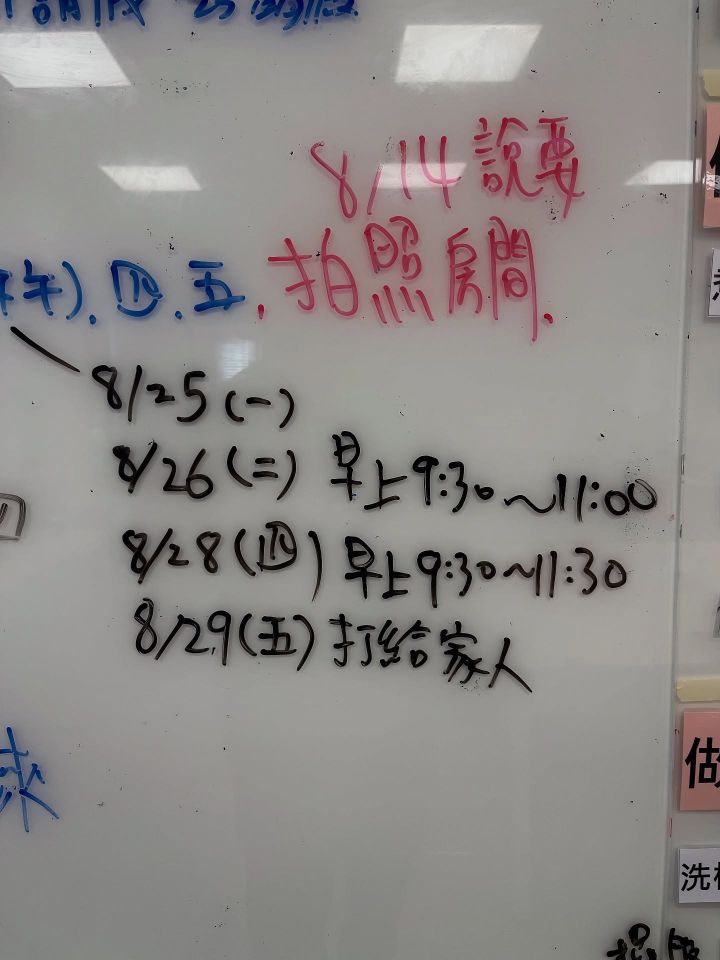 8/14說要
午).四.五.拍照房間.
8/25(一)
8/26(二) 早上9:30~11:00
8/28(四) 早上9:30~11:30
8/29(五)打給家人
做
洗